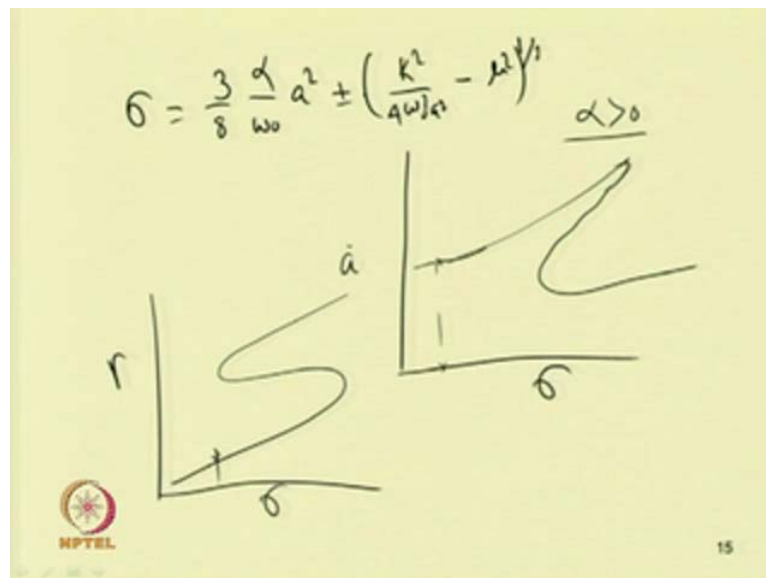 σ = 3/8 α/ω₀ a² ± (k²/4ω₀²a² - μ²)^1/2
α>0
a
r
σ
σ
NPTEL
15